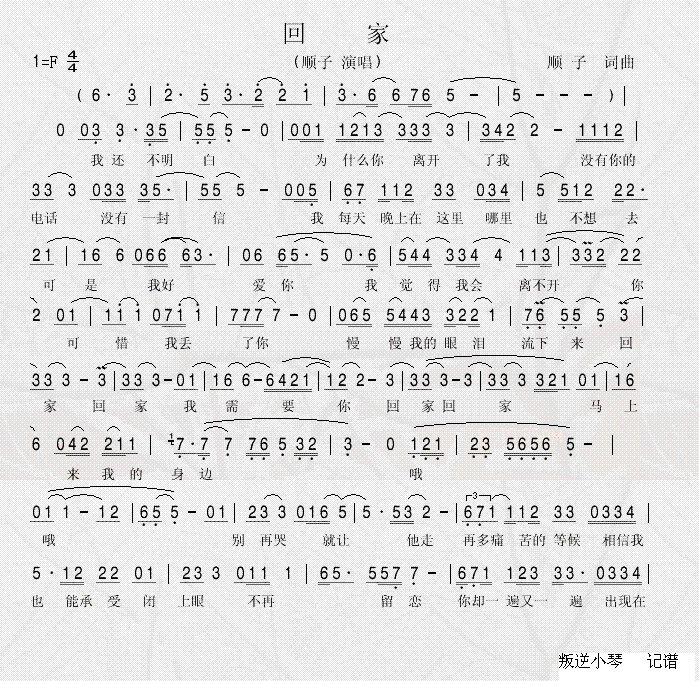 回 家
1=F 4/4 (顺子 演唱) 顺 子 词曲
( 6 · 3 | 2 · 5 3 · 2 2 1 | 3 · 6 6 76 5 - | 5 - - - ) |
0 03 3 · 35 | 55 5 - 0 | 001 1213 333 3 | 342 2 - 1112 |
我 还 不明 白 为 什么你 离开 了我 没有你的
33 3 033 35 · | 55 5 - 005 | 67 112 33 034 | 5 512 22 ·
电话 没有 一封 信 我 每天 晚上在 这里 哪里 也 不想 去
21 | 16 6 066 63 · | 06 65 · 5 0 · 6 | 544 334 4 113 | 332 22
可 是 我好 爱你 我 觉 得 我会 离不开 你
2 01 | 11 1 071 1 | 777 7 - 0 | 065 5443 322 1 | 76 55 5 3
可 惜 我丢 了你 慢 慢我的 眼 泪 流下 来 回
33 3 - 3 | 33 3 - 01 | 16 6 - 6421 | 12 2 - 3 | 33 3 - 3 | 33 3 321 01 | 16
家 回 家 我 需 要 你 回 家 回 家 马 上
6 042 211 | 1 7 · 7 7 76 5 32 | 3 - 0 121 | 23 5656 5 - |
来 我 的 身 边 哦
01 1 - 12 | 65 5 - 01 | 23 3 016 5 | 5 · 53 2 - | 3 671 112 33 0334 |
哦 别 再哭 就让 他走 再多痛 苦的 等候 相信我
5 · 12 22 01 | 23 3 011 1 | 65 · 557 7 - | 671 123 33 · 0334 |
也 能承 受 闭 上眼 不再 留 恋 你却一 遍又一 遍 出现在
叛逆小琴 记谱